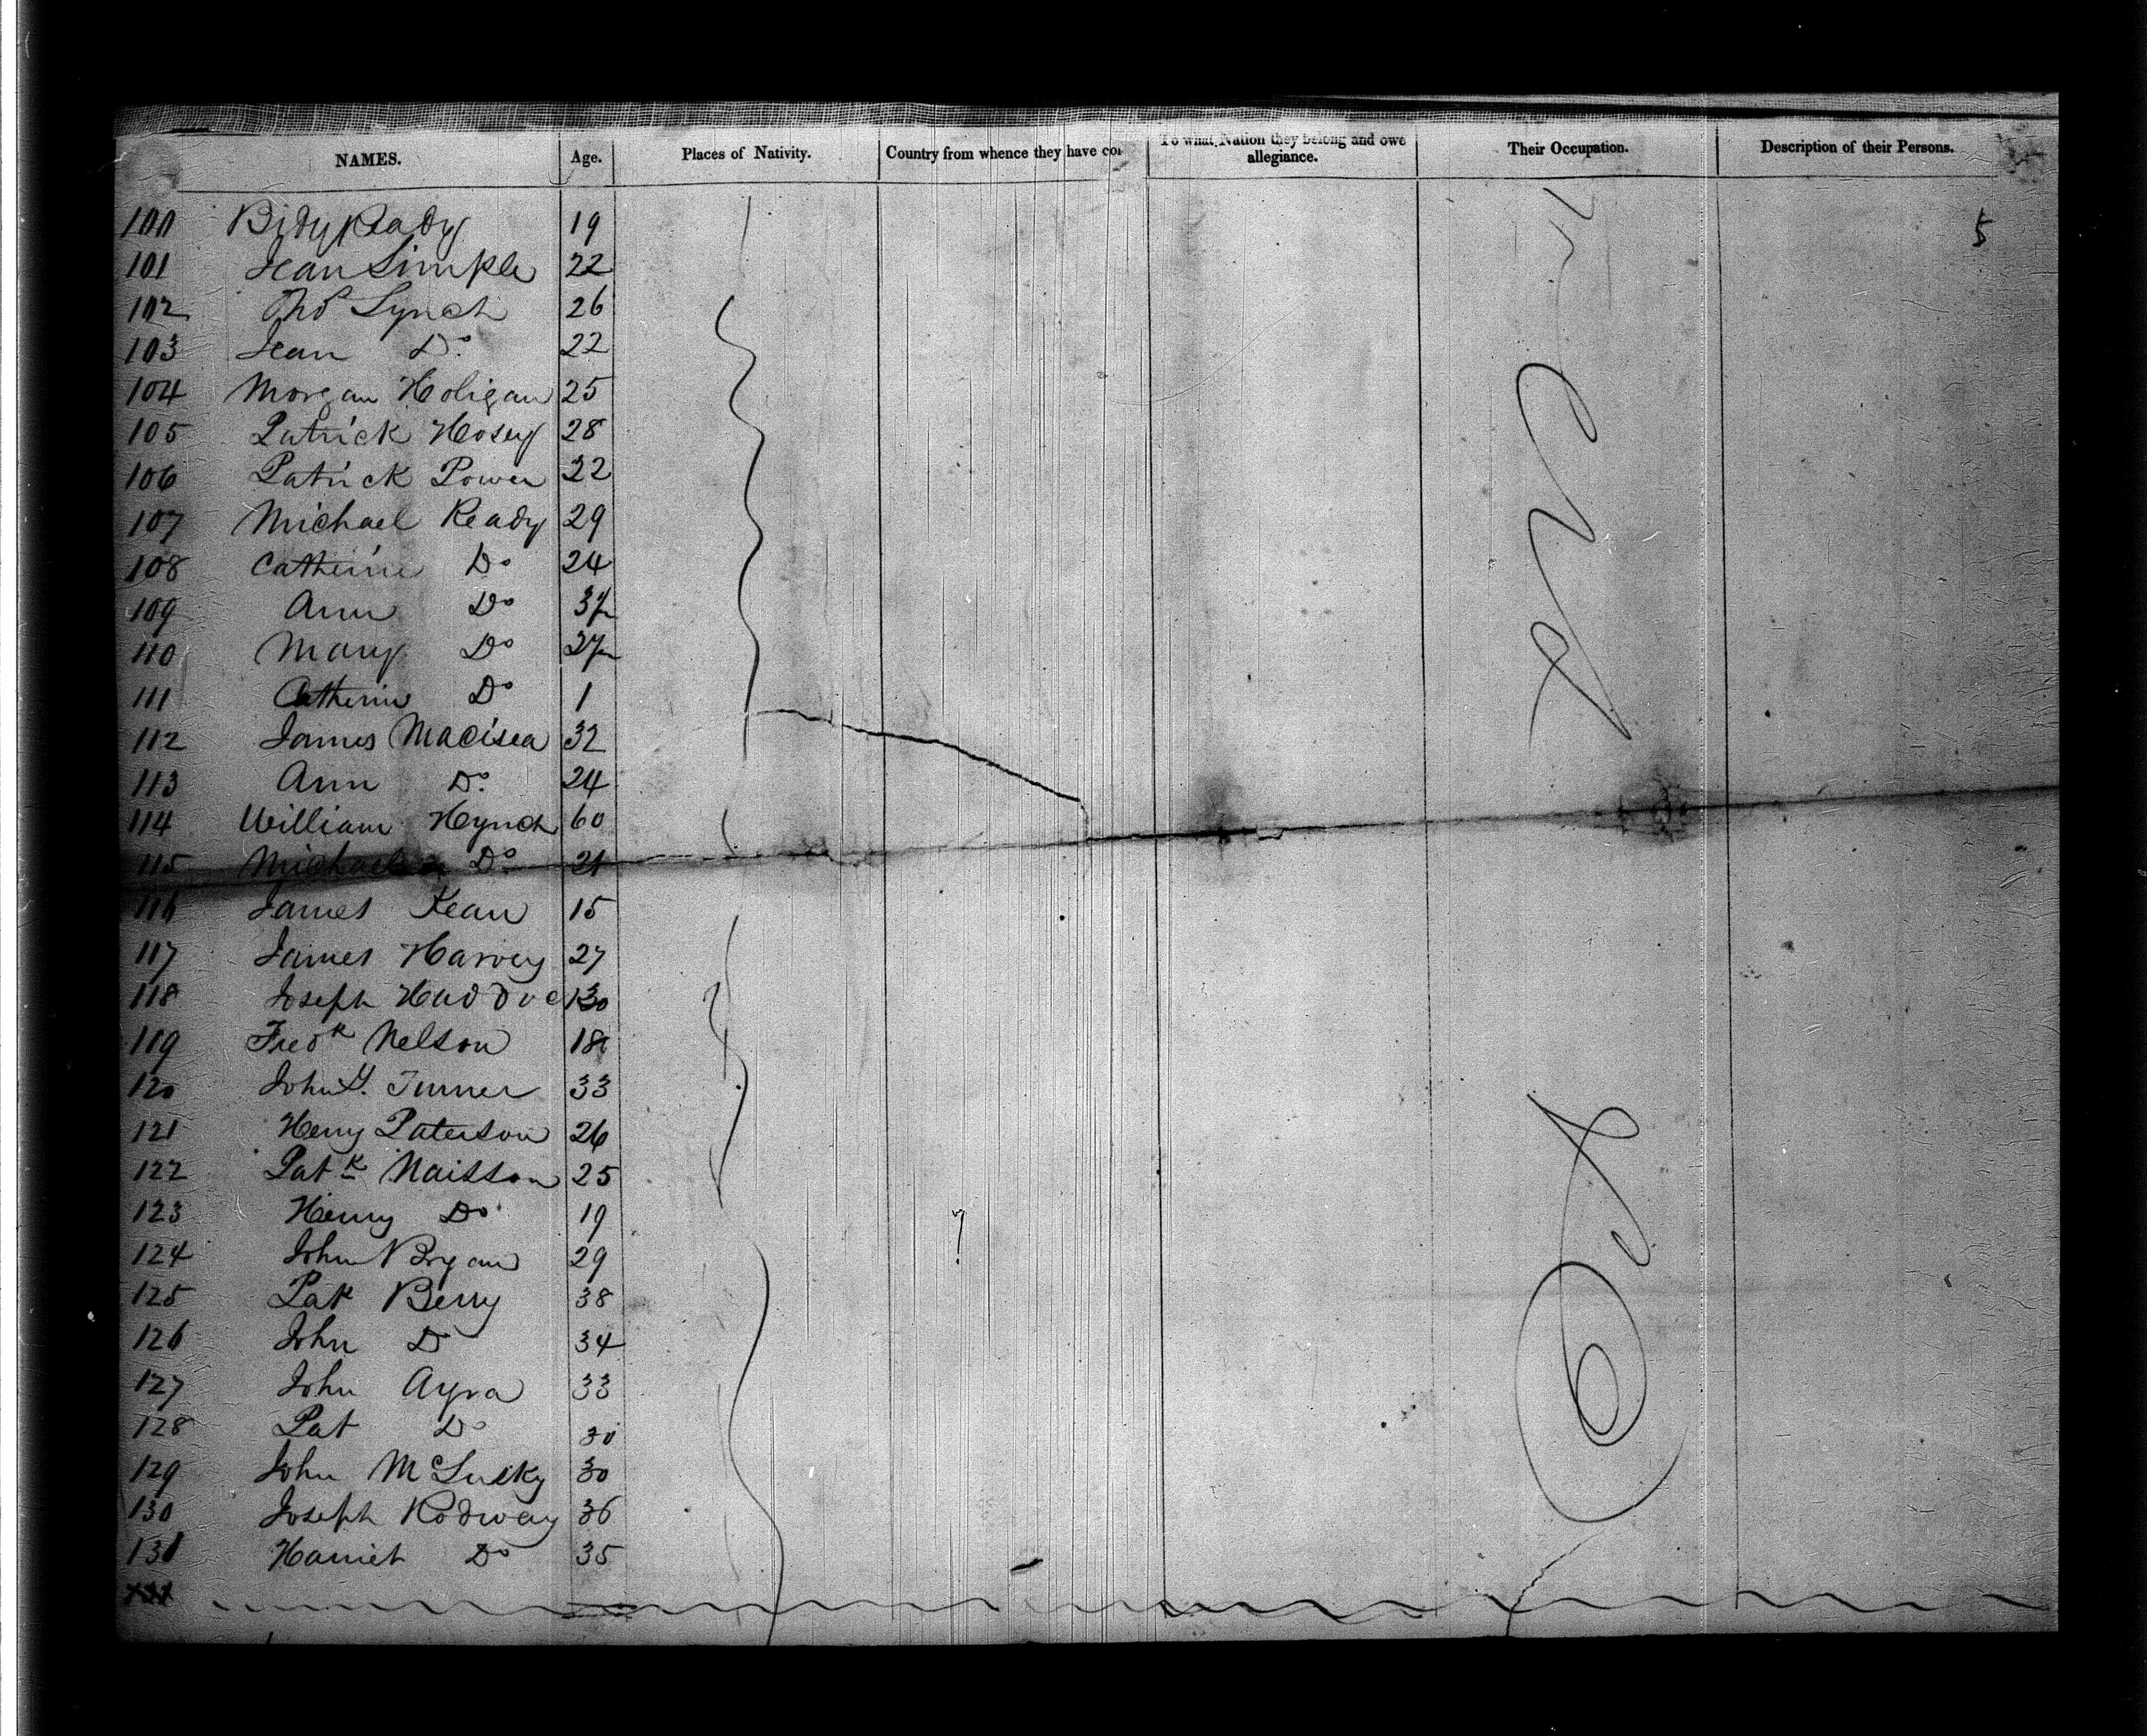 NAMES. Age. Places of Nativity. Country from whence they have co To what Nation they belong and owe allegiance. Their Occupation. Description of their Persons.
5
100 Bidy Ready 19
101 Jean Simple 22
102 Thos Lynch 26
103 Jean Do. 22
104 Morgan Holigan 25
105 Patrick Hosey 28
106 Patrick Power 22
107 Michael Ready 29
108 Catherine Do 24
109 Ann Do
110 Mary Do
111 Catherin Do 1
112 James Macisea 32
113 Ann Do. 24
114 William Hynch 60
115 Michael Do. 21
116 James Kean 15
117 James Harvey 27
118 Joseph Haddock 30
119 Fredk Nelson 18
120 John Turner 33
121 Henry Paterson 26
122 Patk Naisson 25
123 Henry Do 19
124 John Bryan 29
125 Patk Berry 38
126 John Do 34
127 John Ayra 33
128 Pat Do 30
129 John McLusky 30
130 Joseph Rodway 36
131 Harriet Do 35